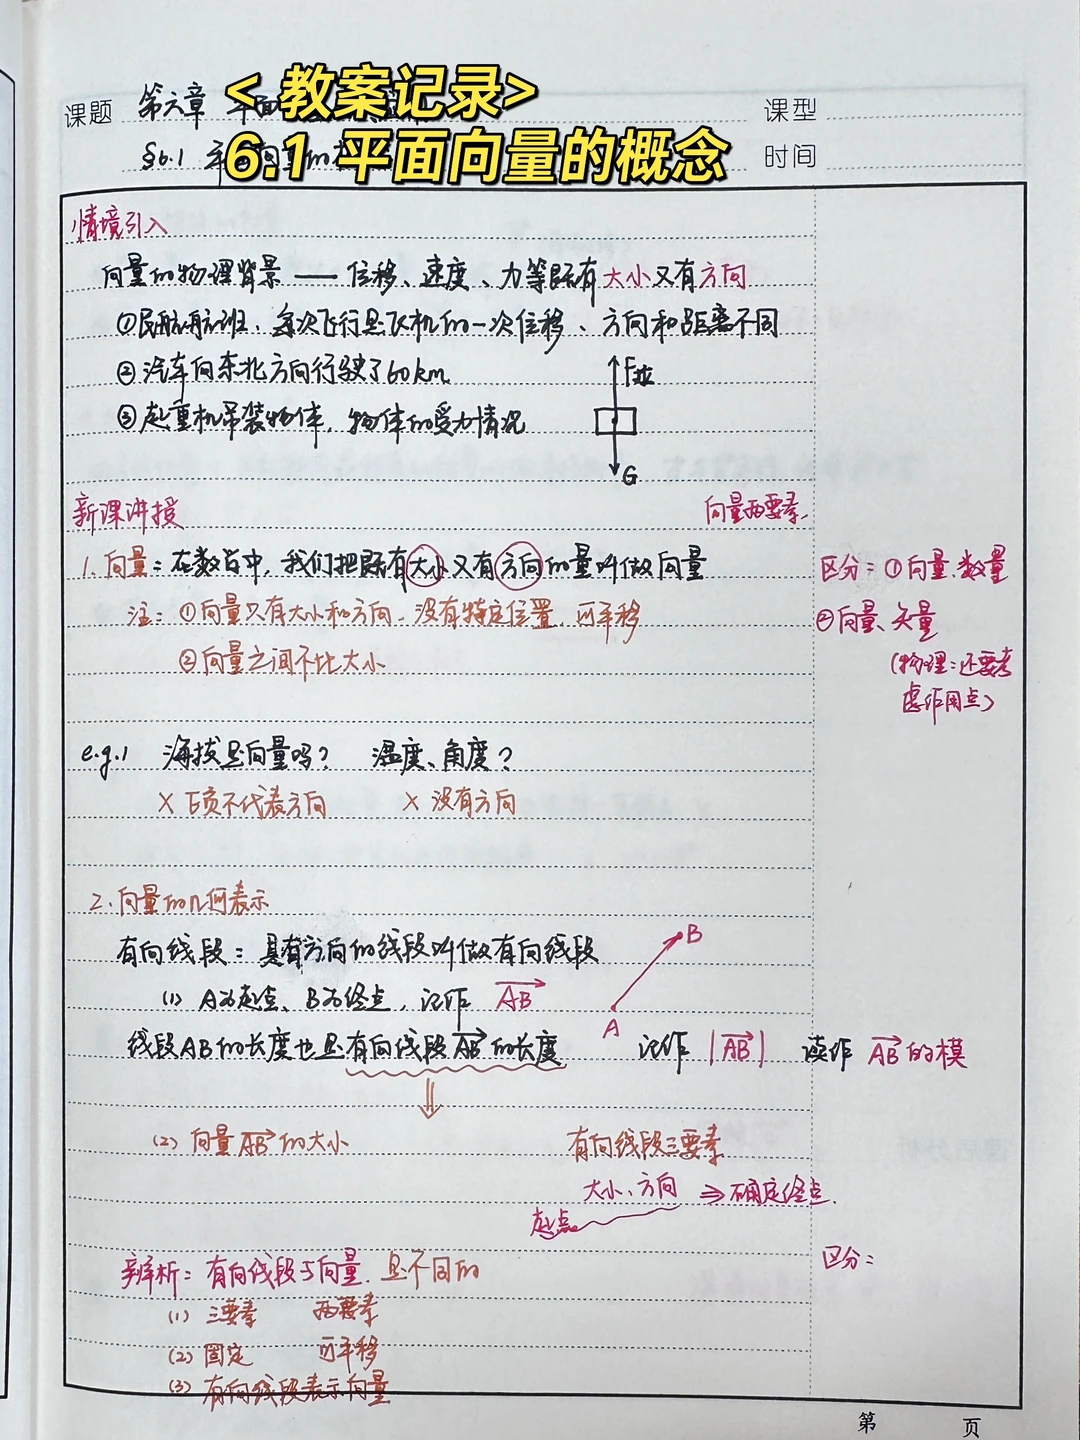 <教案记录>
6.1 平面向量的概念
课题 第六章 平面
课型
§6.1 平
时间
情境引入
向量的物理背景 —— 位移、速度、力等既有大小又有方向
①民航航班、每次飞行是飞机的一次位移、方向和距离不同
②汽车向东北方向行驶了60km
③起重机吊装物体,物体的受力情况
F拉
G
新课讲授
向量两要素
1.向量:在数学中,我们把既有大小又有方向的量叫做向量
区分:①向量.数量
注:①向量只有大小和方向.没有特定位置.可平移
②向量、矢量
②向量之间不比大小
(物理:还要考
虑作用点)
e.g.1 海拔是向量吗? 温度、角度?
× 正负不代表方向 × 没有方向
2.向量的几何表示
有向线段:具有方向的线段叫做有向线段
B
A
(1) A为起点、B为终点,记作 AB
线段AB的长度也是有向线段AB的长度 记作 |AB| 读作 AB的模
⇓
(2) 向量AB的大小
有向线段三要素
大小、方向 ⇒ 确定终点.
起点
辨析:有向线段与向量.是不同的
区分:
(1) 三要素 两要素
(2) 固定 可平移
(3) 有向线段表示向量
第 页